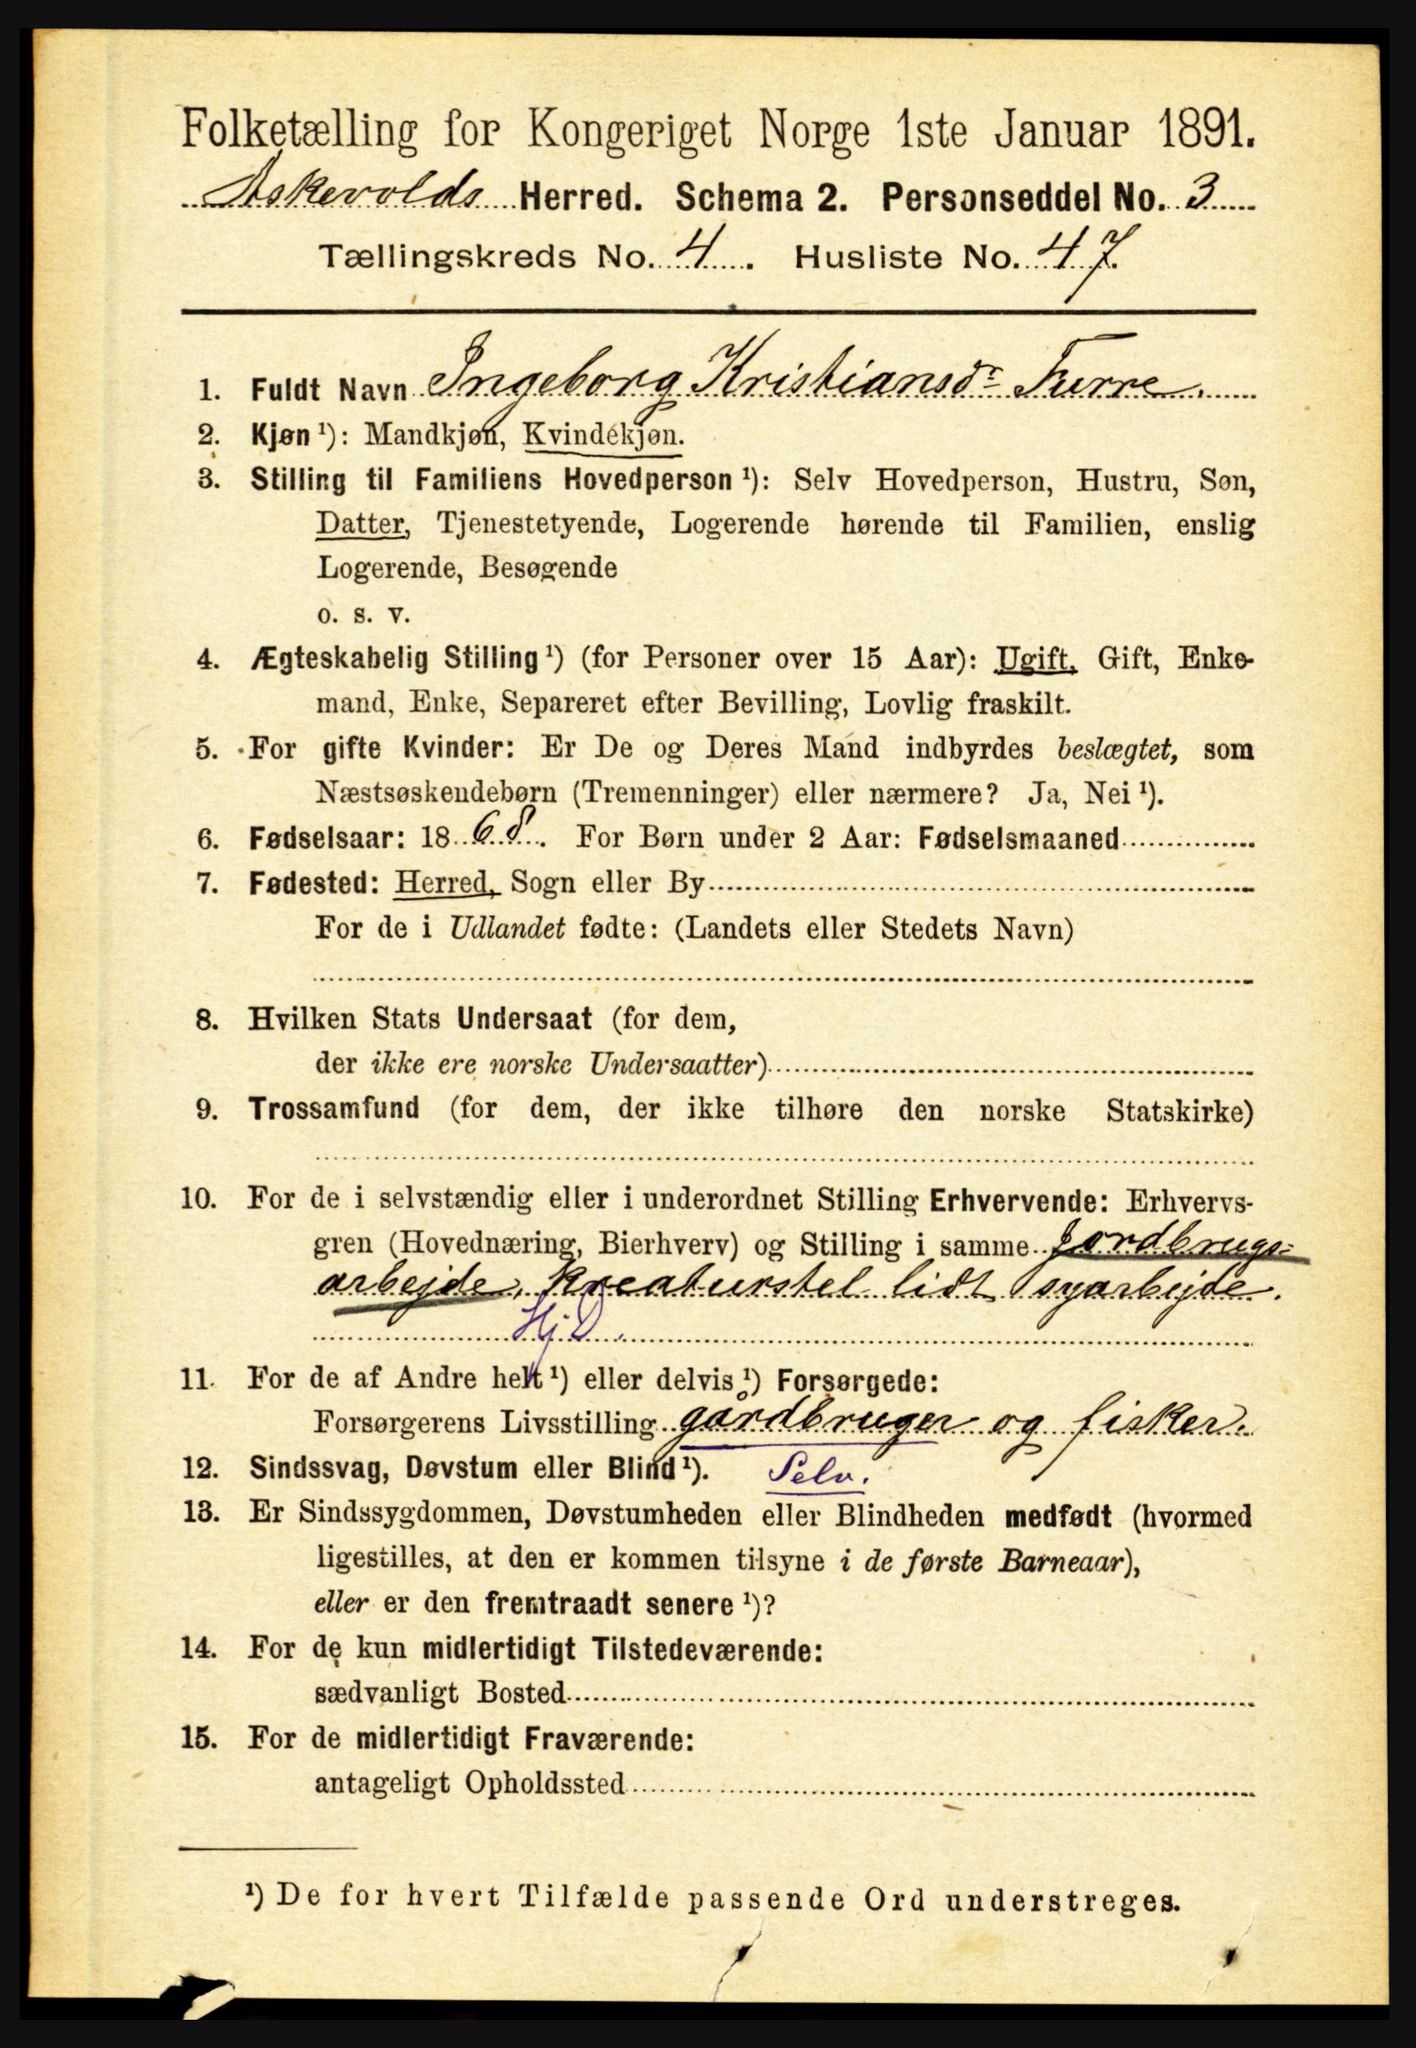 Folketælling for Kongeriget Norge 1ste Januar 1891.
Askevolds Herred. Schema 2. Personseddel No. 3
Tællingskreds No. 4. Husliste No. 47.
1. Fuldt Navn Ingeborg Kristiansdr Furre.
2. Kjøn ¹): Mandkjøn, Kvindekjøn.
3. Stilling til Familiens Hovedperson ¹): Selv Hovedperson, Hustru, Søn,
Datter, Tjenestetyende, Logerende hørende til Familien, enslig
Logerende, Besøgende
o. s. v.
4. Ægteskabelig Stilling ¹) (for Personer over 15 Aar): Ugift, Gift, Enke-
mand, Enke, Separeret efter Bevilling, Lovlig fraskilt.
5. For gifte Kvinder: Er De og Deres Mand indbyrdes beslægtet, som
Næstsøskendebørn (Tremenninger) eller nærmere? Ja, Nei ¹).
6. Fødselsaar: 1868. For Børn under 2 Aar: Fødselsmaaned
7. Fødested: Herred, Sogn eller By
For de i Udlandet fødte: (Landets eller Stedets Navn)
8. Hvilken Stats Undersaat (for dem,
der ikke ere norske Undersaatter)
9. Trossamfund (for dem, der ikke tilhøre den norske Statskirke)
10. For de i selvstændig eller i underordnet Stilling Erhvervende: Erhvervs-
gren (Hovednæring, Bierhverv) og Stilling i samme Jordbrugs=
arbejde, kreaturstel lidt syarbejde.
Hj D.
11. For de af Andre helt ¹) eller delvis ¹) Forsørgede:
Forsørgerens Livsstilling gårdbruger og fisker.
12. Sindssvag, Døvstum eller Blind ¹). Selv.
13. Er Sindssygdommen, Døvstumheden eller Blindheden medfødt (hvormed
ligestilles, at den er kommen tilsyne i de første Barneaar),
eller er den fremtraadt senere ¹)?
14. For de kun midlertidigt Tilstedeværende:
sædvanligt Bosted
15. For de midlertidigt Fraværende:
antageligt Opholdssted
¹) De for hvert Tilfælde passende Ord understreges.